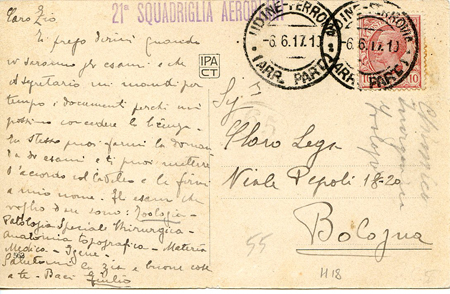 21ª SQUADRIGLIA AEROPLANI
Caro Zio,
Ti prego dirmi quando
vi saranno gli esami e che
il segretario mi mandi per
tempo i documenti perchè mi
possino concedere la licenza.
Tu stesso puoi farmi la domanda
da di esami e ti puoi mettere
d'accordo col
a mio nome. Gli esami che
voglio dare sono: Zoologia -
Patologia Speciale Chirurgica -
Anatomia topografica - Materia
Medica - Igene -
Salutami la Zia e buone cose
a te. Baci Giulio
IPA
CT
UDINE-FERROVIA
-6.6.17.19
(ARR. PART.)
UDINE-FERROVIA
-6.6.17.19
(ARR. PART.)
10
Sig.
Cloro Lega
Viale Pepoli 18-20
Bologna
55
H18